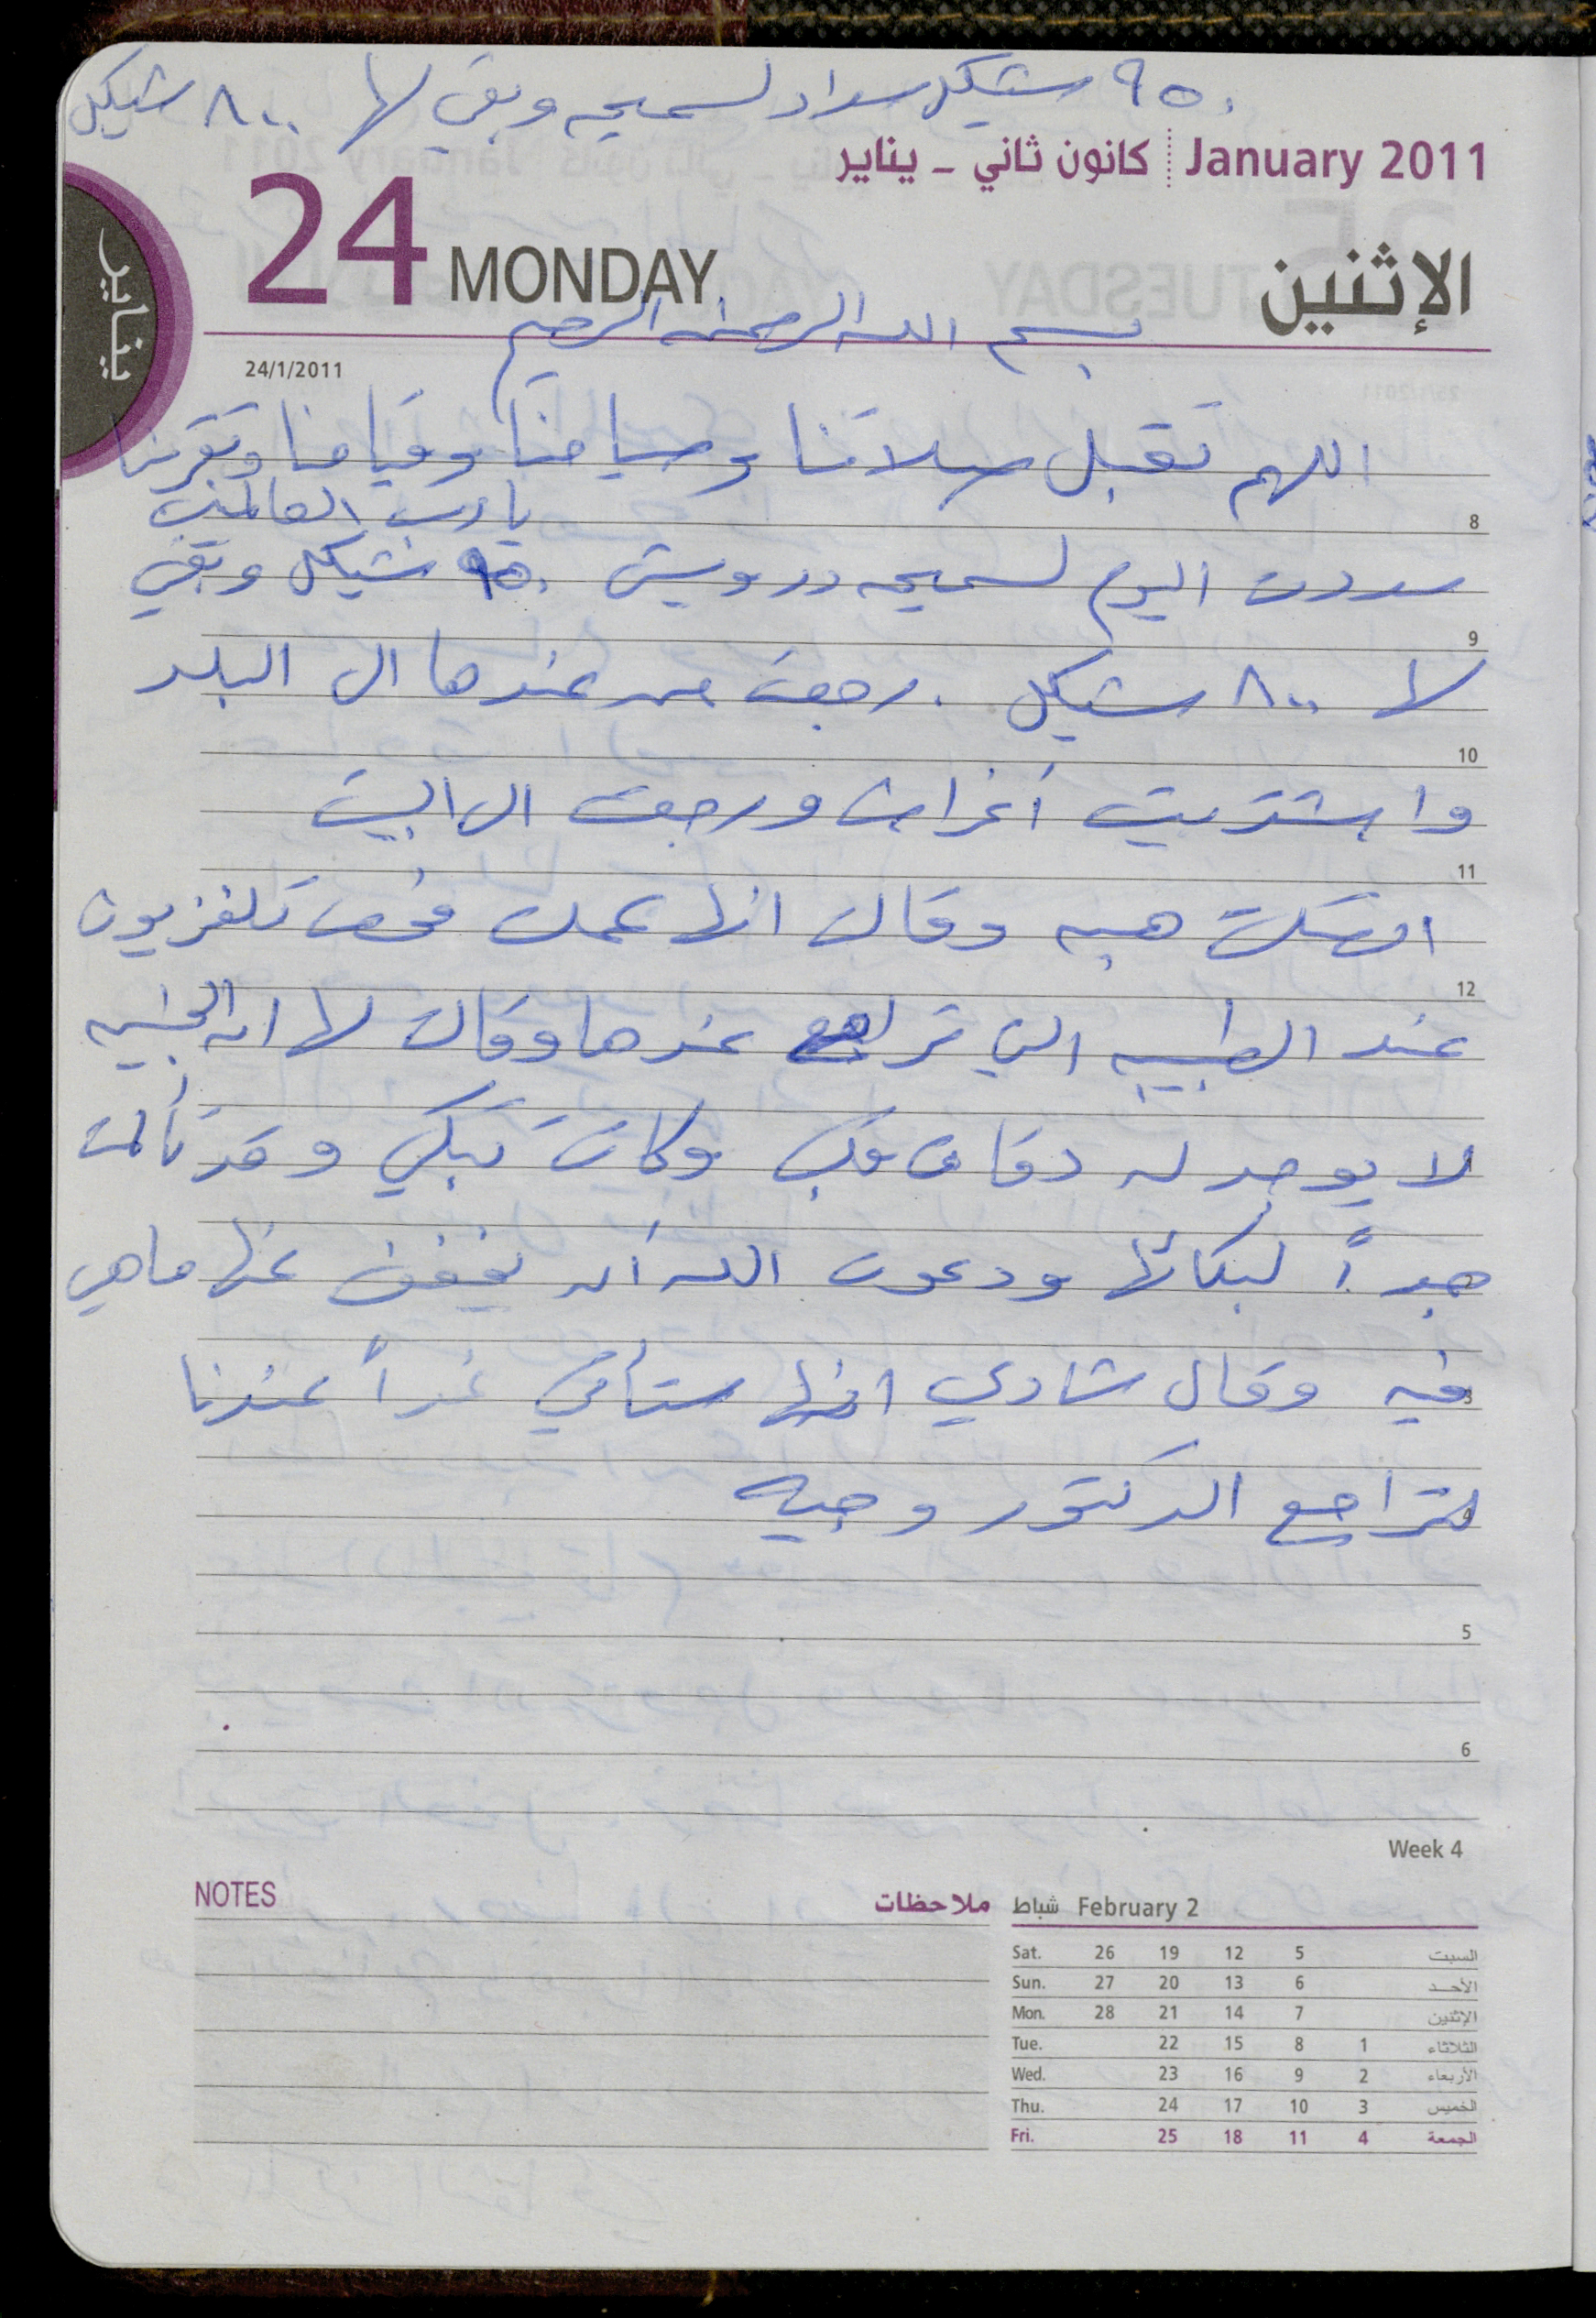 ٩٥٠ شيكل سداد لسميحه وبقي لها ٨٠٠ شيكل
January 2011 كانون ثاني - يناير
24 MONDAY الإثنين
يناير
بسم الله الرحمن الرحيم
24/1/2011
اللهم تقبل صلاتنا وصيامنا وقيامنا وتقربنا
يا رب العالمين
8
سددت اليوم لسميحه درويش ٩٥٠ شيكل وبقي
9
لها ٨٠٠ شيكل . رجعت من عندها الى البلد
10
واشتريت أغراض ورجعت الى البيت
11
اتصلت هبه وقالت انها عملت فحص تلفزيون
12
عند الطبيبه التي تراجع عندها وقالت لها ان الجنين
لا يوجد له دقات قلب وكانت تبكي وقد تألمت
جداً لبكائها ودعوت الله أن يخفف عنها ما هي
فيه وقال شادي انها ستأتي غداً عندنا
لتراجع الدكتور وجيه
5
6
Week 4
NOTES ملاحظات
شباط February 2
Sat. 26 19 12 5 السبت
Sun. 27 20 13 6 الأحد
Mon. 28 21 14 7 الإثنين
Tue. 22 15 8 1 الثلاثاء
Wed. 23 16 9 2 الأربعاء
Thu. 24 17 10 3 الخميس
Fri. 25 18 11 4 الجمعة